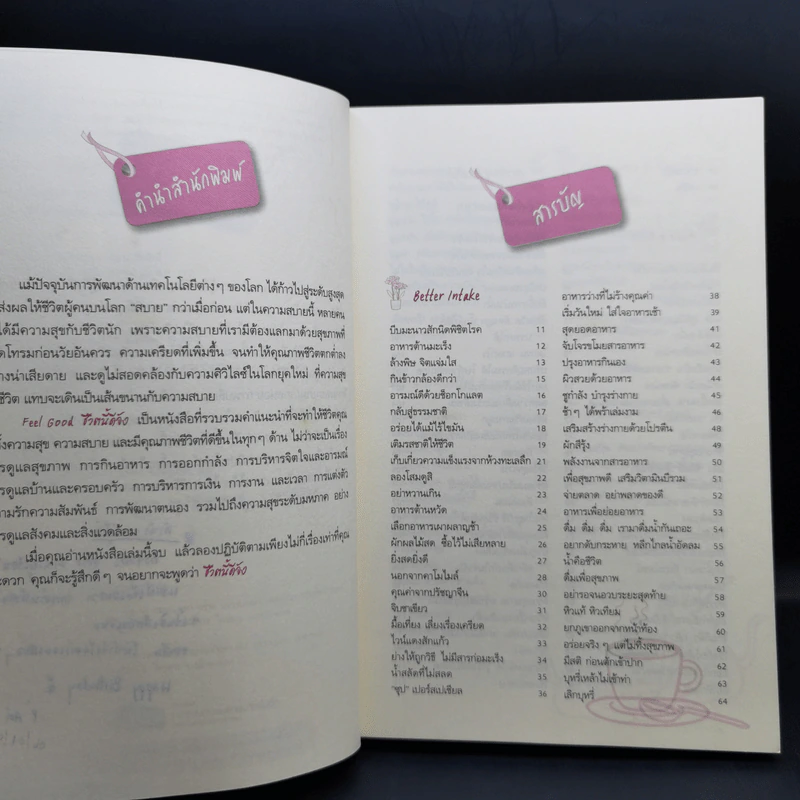 คำนำสำนักพิมพ์
แม้ปัจจุบันการพัฒนาด้านเทคโนโลยีต่างๆ ของโลก ได้ก้าวไปสู่ระดับสูงสุด
ส่งผลให้ชีวิตผู้คนบนโลก “สบาย” กว่าเมื่อก่อน แต่ในความสบายนี้ หลายคน
ได้มีความสุขกับชีวิตนัก เพราะความสบายที่เรามีต้องแลกมาด้วยสุขภาพที่
ดโทรมก่อนวัยอันควร ความเครียดที่เพิ่มขึ้น จนทำให้คุณภาพชีวิตตกต่ำลง
างน่าเสียดาย และดูไม่สอดคล้องกับความศิวิไลซ์ในโลกยุคใหม่ ที่ความสุข
ชีวิต แทบจะเดินเป็นเส้นขนานกับความสบาย
Feel Good ชีวิตนี้ดีจัง เป็นหนังสือที่รวบรวมคำแนะนำที่จะทำให้ชีวิตคุณ
ทั้งความสุข ความสบาย และมีคุณภาพชีวิตที่ดีขึ้นในทุกๆ ด้าน ไม่ว่าจะเป็นเรื่อง
รดูแลสุขภาพ การกินอาหาร การออกกำลัง การบริหารจิตใจและอารมณ์
รดูแลบ้านและครอบครัว การบริหารการเงิน การงาน และเวลา การแต่งตัว
ามรักความสัมพันธ์ การพัฒนาตนเอง รวมไปถึงความสุขระดับมหภาค อย่าง
รดูแลสังคมและสิ่งแวดล้อม
เมื่อคุณอ่านหนังสือเล่มนี้จบ แล้วลองปฏิบัติตามเพียงไม่กี่เรื่องเท่าที่คุณ
ะดวก คุณก็จะรู้สึกดีๆ จนอยากจะพูดว่า ชีวิตนี้ดีจัง
สารบัญ
Better Intake
บีบมะนาวสักนิดพิชิตโรค 11
อาหารต้านมะเร็ง 12
ล้างพิษ จิตแจ่มใส 13
กินข้าวกล้องดีกว่า 15
อารมณ์ดีด้วยช็อกโกแลต 16
กลับสู่ธรรมชาติ 17
อร่อยได้แม้ไร้ไขมัน 18
เติมรสชาติให้ชีวิต 20
เก็บเกี่ยวความแข็งแรงจากห้วงทะเลลึก 21
ลองโสมดูสิ 22
อย่าหวานเกิน 23
อาหารต้านหวัด 24
เลือกอาหารเผาผลาญช้า 25
ผักผลไม้สด ซื้อไว้ไม่เสียหลาย 26
ยิ่งสดยิ่งดี 27
นอกจากคาโมไมล์ 28
คุณค่าจากปรัชญาจีน 30
จิบชาเขียว 31
มื้อเที่ยง เลี่ยงเรื่องเครียด 32
ไวน์แดงสักแก้ว 33
ย่างให้ถูกวิธี ไม่มีสารก่อมะเร็ง 34
น้ำสลัดที่ไม่สลด 35
“ซุป” เปอร์สเปเชียล 36
อาหารว่างที่ไม่ร้างคุณค่า 38
เริ่มวันใหม่ ใส่ใจอาหารเช้า 39
สุดยอดอาหาร 41
จับโจรขโมยสารอาหาร 42
ปรุงอาหารกินเอง 43
ผิวสวยด้วยอาหาร 44
ชูกำลัง บำรุงร่างกาย 45
ช้าๆ ได้พร้าเล่มงาม 46
เสริมสร้างร่างกายด้วยโปรตีน 48
ผักสีรุ้ง 49
พลังงานจากสารอาหาร 50
เพื่อสุขภาพดี เสริมวิตามินบีรวม 51
จ่ายตลาด อย่าพลาดของดี 52
อาหารเพื่อย่อยอาหาร 53
ดื่ม ดื่ม ดื่ม เรามาดื่มน้ำกันเถอะ 54
อยากดับกระหาย หลีกไกลน้ำอัดลม 55
น้ำคือชีวิต 56
ดื่มเพื่อสุขภาพ 57
อย่ารอจนอวบระยะสุดท้าย 58
หิวแท้ หิวเทียม 59
ยกภูเขาออกจากหน้าท้อง 60
อร่อยจริงๆ แต่ไม่ทิ้งสุขภาพ 61
มีสติ ก่อนตักเข้าปาก 62
บุหรี่เหล้าไม่เข้าท่า 63
เลิกบุหรี่ 64